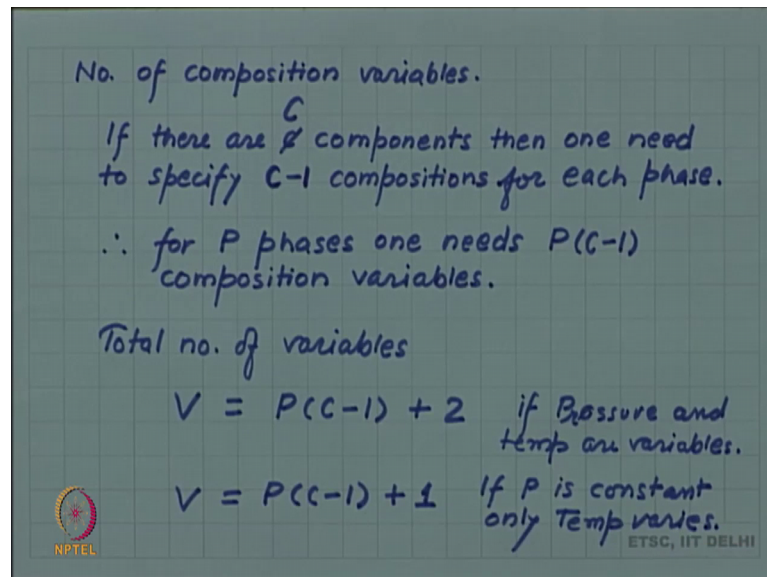 No. of composition variables.
C
If there are ¢ components then one need
to specify C-1 compositions for each phase.
∴ for P phases one needs P(C-1)
composition variables.
Total no. of variables
V = P(C-1) + 2 if Pressure and
temp are variables.
V = P(C-1) + 1 If P is constant
only Temp varies.
NPTEL
ETSC, IIT DELHI